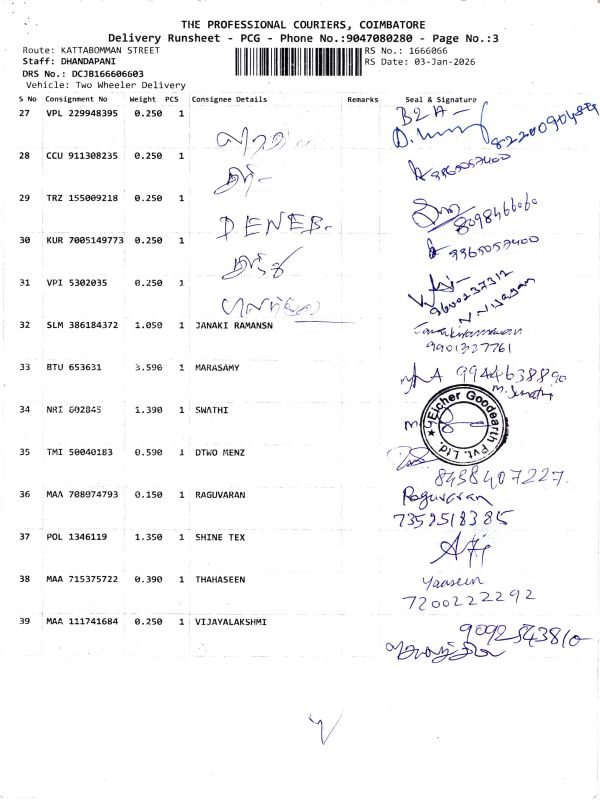 THE PROFESSIONAL COURIERS, COIMBATORE
Delivery Runsheet - PCG - Phone No.:9047080280 - Page No.:3
Route: KATTABOMMAN STREET RS No.: 1666066
Staff: DHANDAPANI RS Date: 03-Jan-2026
DRS No.: DCJB166606603
Vehicle: Two Wheeler Delivery
S No Consignment No Weight PCS Consignee Details Remarks Seal & Signature
27 VPL 229948395 0.250 1 B2A -
28 CCU 911308235 0.250 1 9965057400
29 TRZ 155009218 0.250 1 DENEB. 8098466060
30 KUR 7005149773 0.250 1 9965057400
31 VPI 5302035 0.250 1 9600237312
32 SLM 386184372 1.050 1 JANAKI RAMANSN
9901327761
33 BTU 653631 3.590 1 MARASAMY 9944638890
34 NRI 602845 1.390 1 SWATHI
Eicher Goodearth Pvt. Ltd.
35 TMI 50040183 0.590 1 DTWO MENZ
8438407227.
36 MAA 708974793 0.150 1 RAGUVARAN Raguvaran
7359518385
37 POL 1346119 1.350 1 SHINE TEX
38 MAA 715375722 0.390 1 THAHASEEN Yaaseen
7200222292
39 MAA 111741684 0.250 1 VIJAYALAKSHMI 9092543810